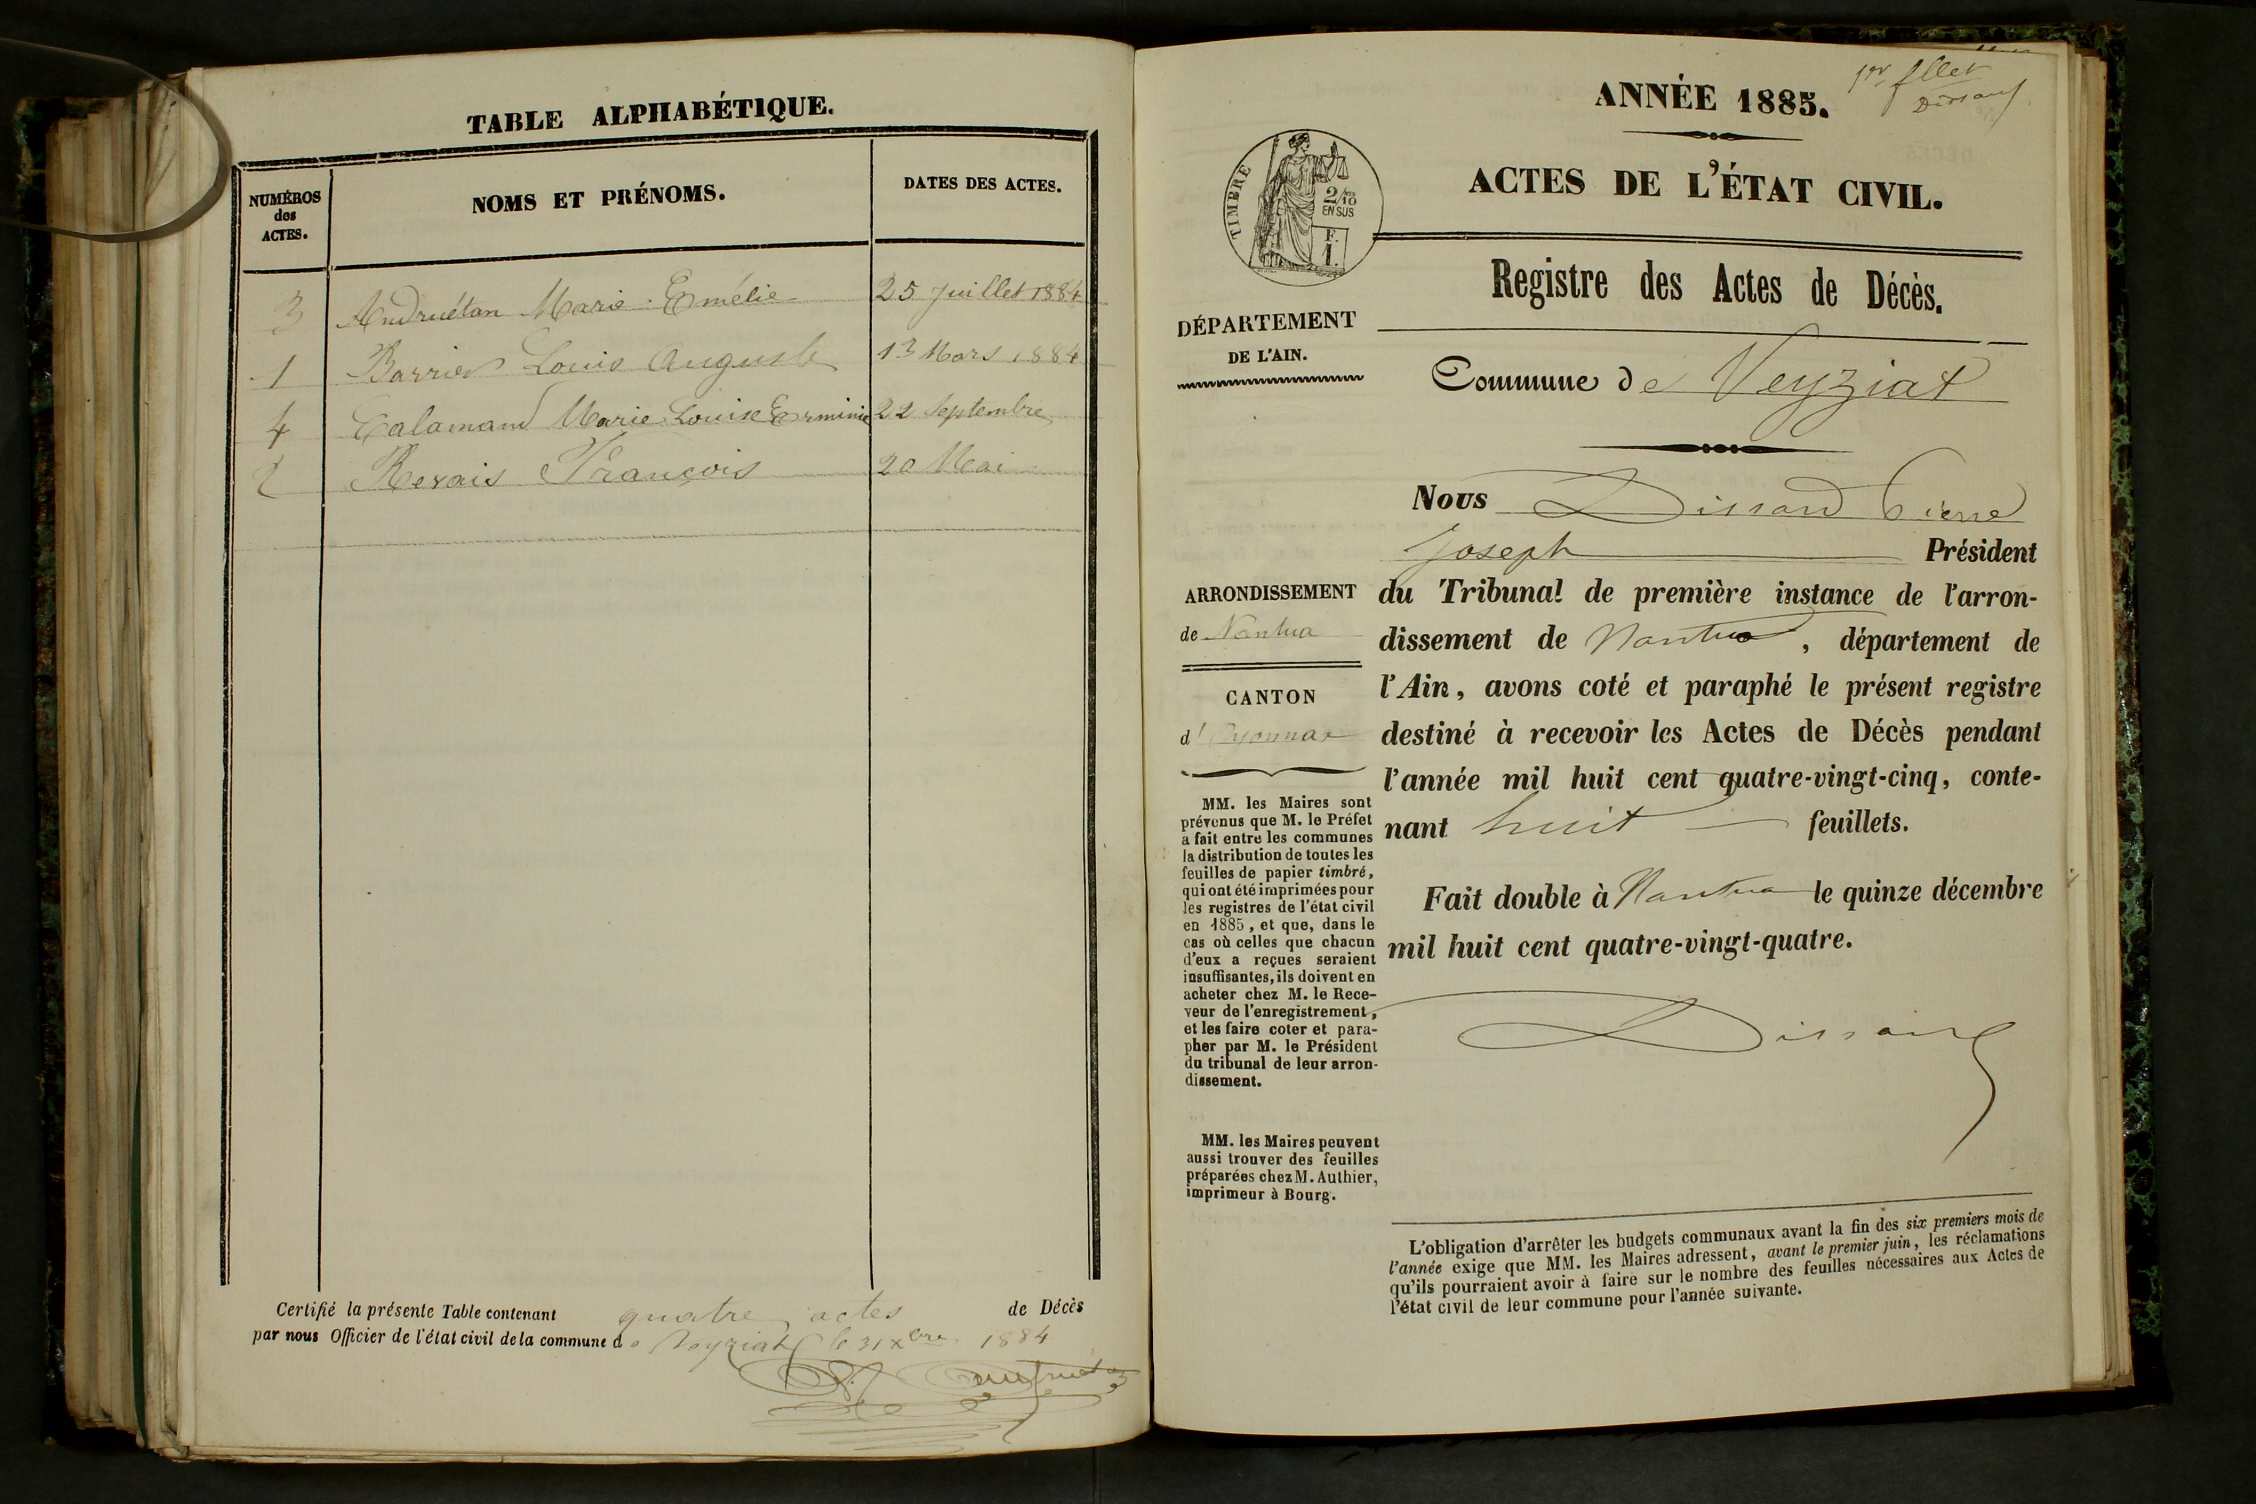 TABLE ALPHABÉTIQUE.
NUMÉROS
des
ACTES.
NOMS ET PRÉNOMS.
DATES DES ACTES.
3 Andruétan Marie Emélie 25 Juillet 1884
1 Barrier Louis Auguste 13 Mars 1884
4 Calamand Marie Louise Erminie 22 Septembre
2 Revais François 20 Mai
Certifié la présente Table contenant quatre actes de Décès
par nous Officier de l'état civil de la commune de Veyziat le 31 xbre 1884
1er fllet
Dissard
ANNÉE 1885.
ACTES DE L'ÉTAT CIVIL.
TIMBRE
2/10
EN SUS
F.
1.
Registre des Actes de Décès.
DÉPARTEMENT
DE L'AIN.
Commune de Veyziat
Nous Dissard Pierre
Joseph Président
du Tribunal de première instance de l'arron-
dissement de Nantua, département de
l'Ain, avons coté et paraphé le présent registre
destiné à recevoir les Actes de Décès pendant
l'année mil huit cent quatre-vingt-cinq, conte-
nant huit feuillets.
Fait double à Nantua le quinze décembre
mil huit cent quatre-vingt-quatre.
Dissard
ARRONDISSEMENT
de Nantua
CANTON
d'Oyonnax
MM. les Maires sont
prévenus que M. le Préfet
a fait entre les communes
la distribution de toutes les
feuilles de papier timbré,
qui ont été imprimées pour
les registres de l'état civil
en 1885, et que, dans le
cas où celles que chacun
d'eux a reçues seraient
insuffisantes, ils doivent en
acheter chez M. le Rece-
veur de l'enregistrement,
et les faire coter et para-
pher par M. le Président
du tribunal de leur arron-
dissement.
MM. les Maires peuvent
aussi trouver des feuilles
préparées chez M. Authier,
imprimeur à Bourg.
L'obligation d'arrêter les budgets communaux avant la fin des six premiers mois de
l'année exige que MM. les Maires adressent, avant le premier juin, les réclamations
qu'ils pourraient avoir à faire sur le nombre des feuilles nécessaires aux Actes de
l'état civil de leur commune pour l'année suivante.